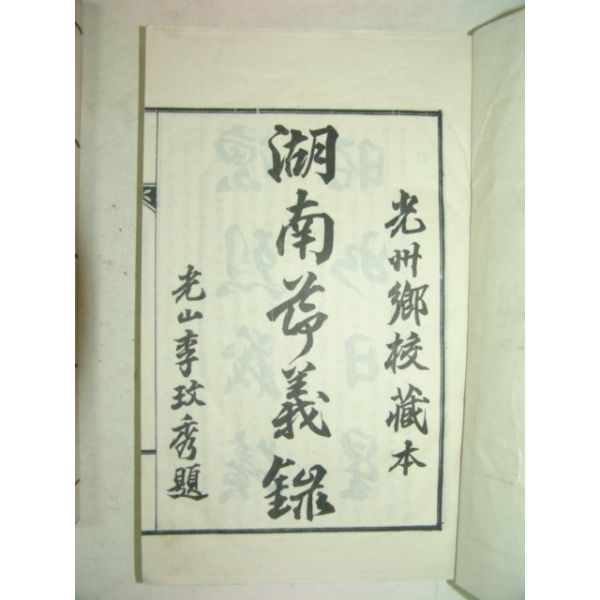 光州鄉校藏本
湖南節義錄
光山李玟秀題